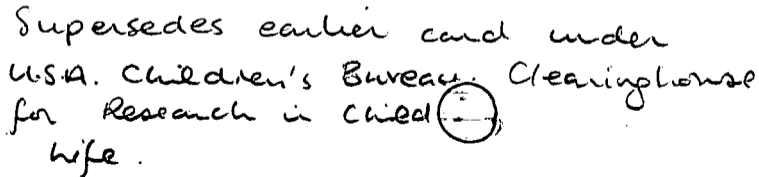 Supersedes earlier card under
U.S.A. Children's Bureau. Clearinghouse
for Research in Child
Life.